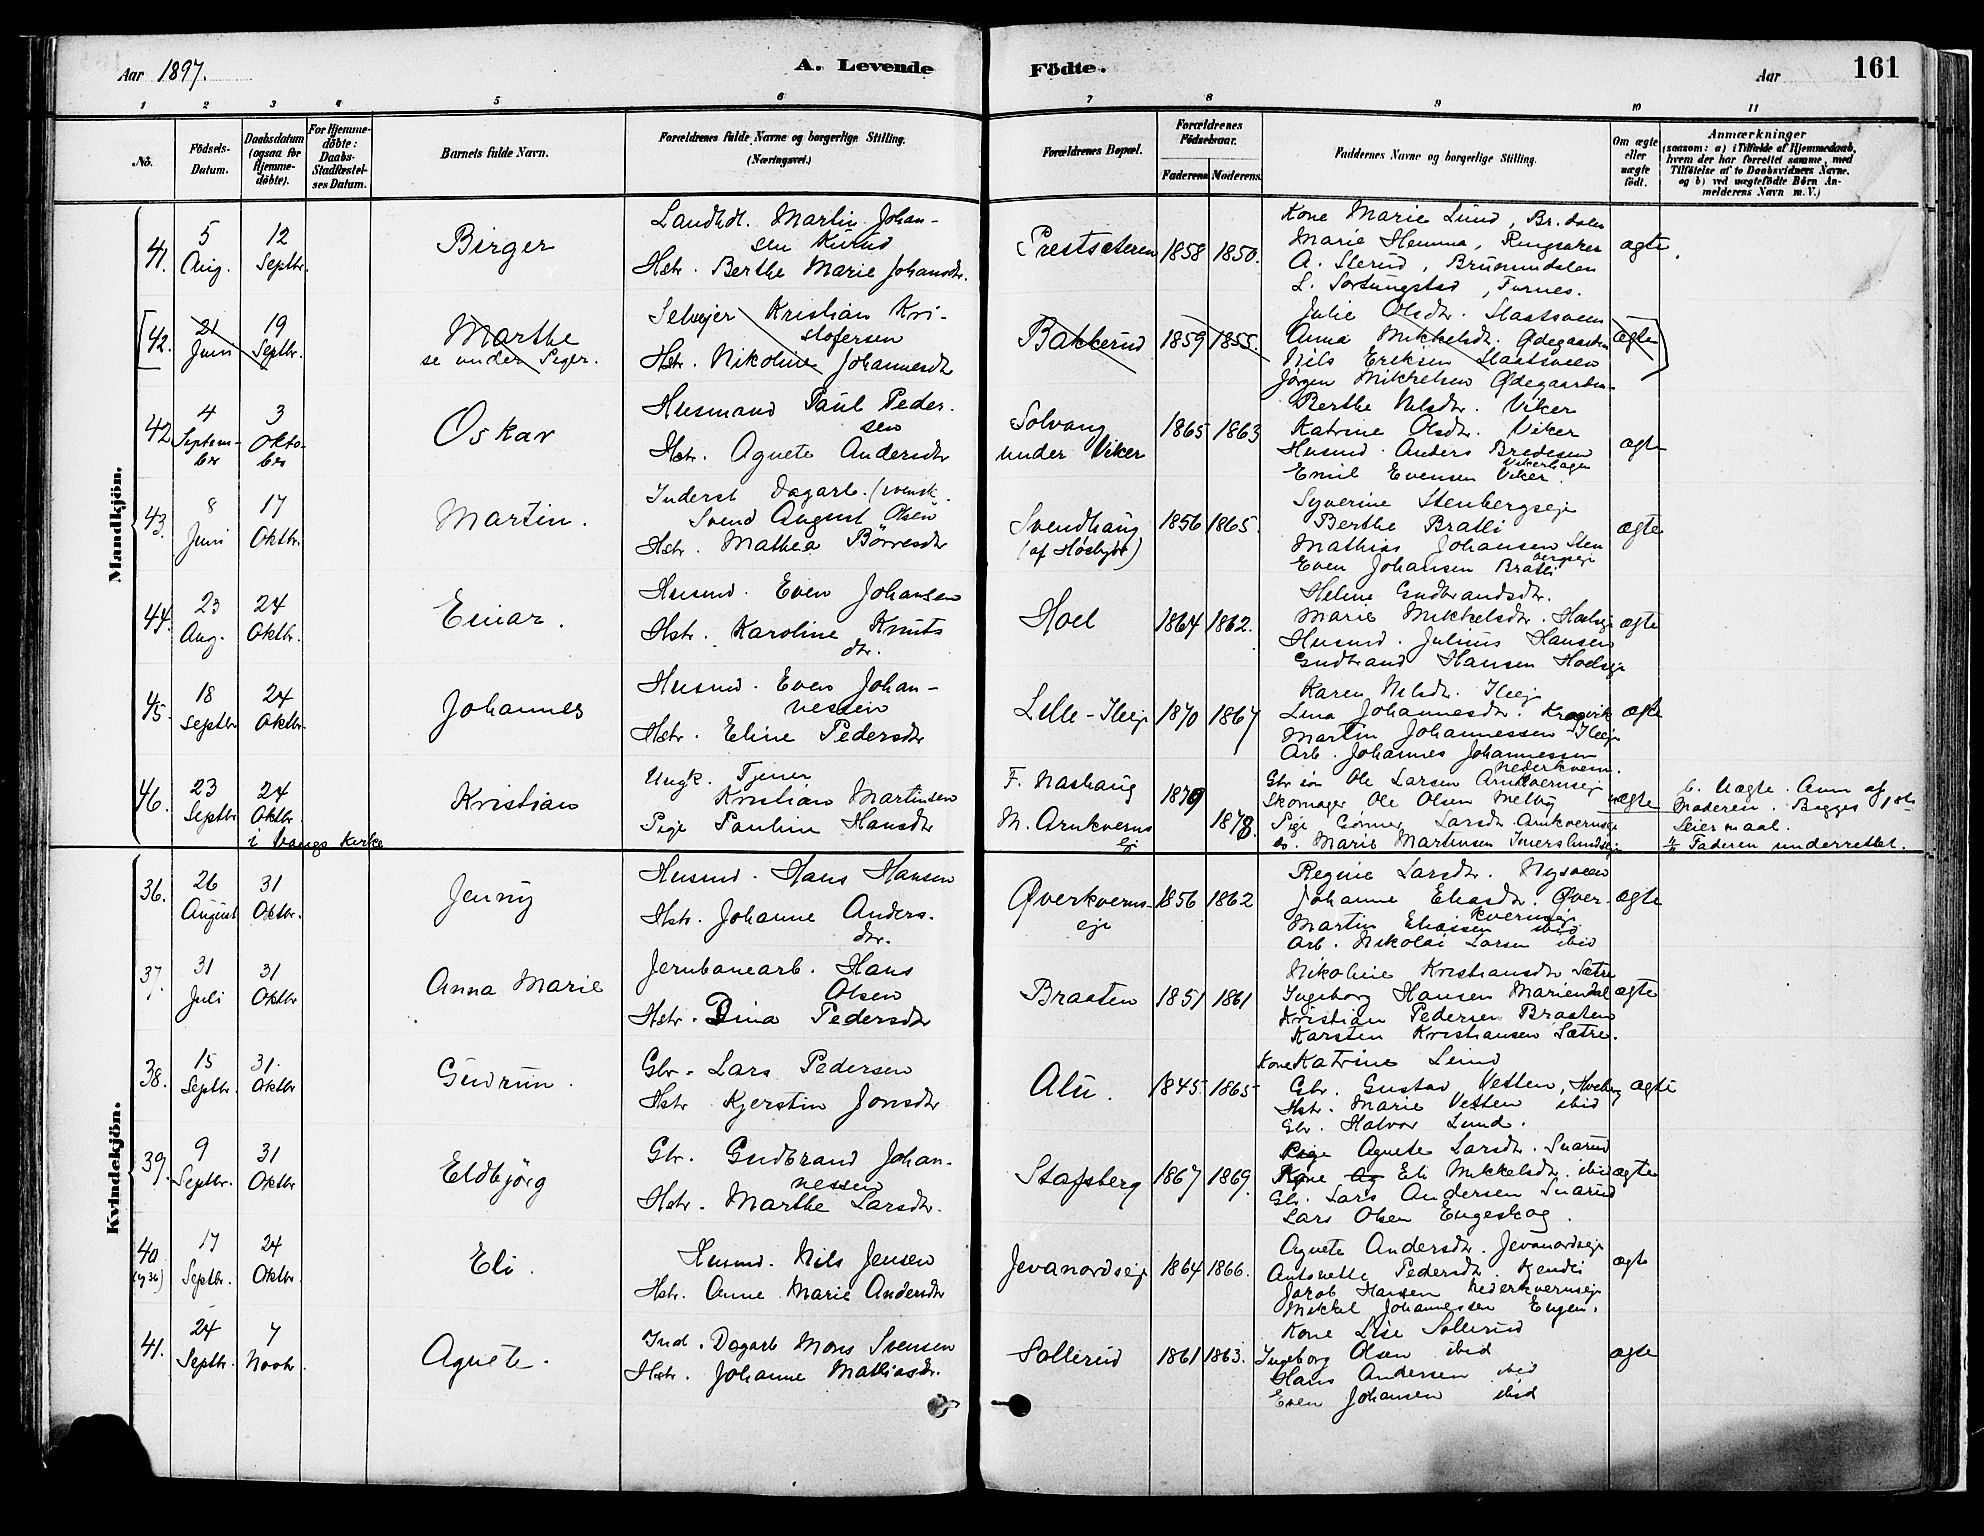 Aar 1897.
A. Levende
Födte.
Aar
161
1 2 3 4 5 6 7 8 9 10 11
No.
Födsels-
Datum.
Daabsdatum
(ogsaa for
Hjemme-
döbte).
For Hjemme-
döbte:
Daabs-
Stadfæstel-
ses Datum.
Barnets fulde Navn.
Forældrenes fulde Navne og borgerlige Stilling.
(Næringsvei.)
Forældrenes Bopæl.
Forældrenes
Födselsaar.
Faderens
Moderens.
Faddernes Navne og borgerlige Stilling.
Om ægte
eller
uægte
födt.
Anmærkninger
(saasom: a) i Tilfælde af Hjemmedaab,
hvem der har forrettet samme, med
Tilföielse af to Daabsvidners Navne,
og b) ved uægtefödte Börn An-
melderens Navn m.V.)
Mandkjön.
41.
5
Aug.
12
Septbr.
Birger
Landhdl. Martin Johan-
sen
Hstr. Berthe Marie Johansdtr.
Prestsæteren
1858
1850.
Kone Marie Lund, Br.dalen
Marie Hemma, Ringsaker
A. Sterud, Brumunddalen
L. Sortungstad, Furnes.
ægte
42.
21
Juni
19
Septbr.
Marthe
se under Piger.
Selvejer Kristian Kri-
stofersen
Hstr. Nikoline Johannesdtr
Bakkerud
1859
1855.
Julie Olsdtr. Staatsveen
Anna Mikkelsdtr. Ødegaarden
Nils Eriksen Staatsveen
Jørgen Mikkelsen Ødegaarden
ægte
42
4
Septem-
ber
3
Okto-
ber
Oskar
Husmand Paul Peder-
sen
Hstr. Agnete Andersdtr
Solvang
under Viker
1865
1863
Berthe Nilsdtr. Viker
Katrine Olsdtr. Viker
Husmd. Anders Bredesen
Vikerhagen
Emil Evensen Viker.
ægte
43.
8
Juni
17
Oktbr.
Martin.
Inderst Dagarb. (svensk.
Svend August Olsen
Hstr. Mathea Børresdtr
Svendhaug
(af Høsbjør)
1856
1865.
Syverine Stenbergseje
Berthe Bratli
Mathias Johansen Sten
bergseje
Even Johansen Bratli
ægte
44.
23
Aug.
24
Oktbr.
Einar.
Husmd. Even Johansen
Hstr. Karoline Knuts
dtr.
Hoel
1864
1862.
Helene Gudbrandsdtr.
Marie Mikkelsdtr. Hoelseje
Husmd. Julius Hansen
Gudbrand Hansen Hoelseje
ægte
45.
18
Septbr
24
Oktbr.
Johannes
Husmd. Even Johan-
nessen
Hstr. Eline Pedersdtr
Lille-Ileeje
1870
1867
Karen Nilsdtr. Ileeje
Lina Johannesdtr. Kragvik
Martin Johannessen Ileeje
Arb. Johannes Johannessen
Nederkvern.
ægte
46.
23
Septbr
24
Oktbr.
i Vangs Kirke
Kristian
Ungk. Tjener
Kristian Martinsen
Pige Pauline Hansdtr
F. Nashaug
M. Arnkverns
ej
1879
1878.
Gbr søn Ole Larsen Arnkvernseje
Skomager Ole Olsen Melby
Pige Gunner Larsdtr. Arnkvernseje
do. Marie Martinsen
uægte
b. Uægte. Anm af
Moderen. Begges 1ste
Leiermaal.
Faderen underrettet.
Kvindekjön.
36.
26
August
31
Oktbr.
Jenny
Husmd. Hans Hansen
Hstr. Johanne Anders-
dtr.
Øverkverns-
eje
1856
1862
Regine Larsdtr. Nysveen
Johanne Eliasdtr. Øver-
kvernseje
Martin Eliassen ibid
Arb. Nikolai Larsen ibid
ægte
37.
31
Juli
31
Oktbr
Anna Marie
Jernbanearb. Hans
Olsen
Hstr. Dina Pedersdtr
Braaten
1851
1861
Nikoline Kristiansdtr Sætre
Ingeborg Hansen Mariendal
Kristian Pedersen Braaten
Karsten Kristiansen Sætre.
ægte
38.
15
Septbr.
31.
Oktbr
Gudrun.
Gbr. Lars Pedersen
Hstr Kjerstin Jonsdtr
Alu.
1845
1865
Kone Katrine Lund
Gbr. Gustav Vetten, Hveberg
Hstr. Marie Vetten ibid
Gbr. Halvor Lund.
ægte
39.
9
Septbr.
31
Oktbr
Eldbjørg
Gbr. Gudbrand Johan-
nessen
Hstr. Marthe Larsdtr.
Stafsberg
1867
1869.
Pige Agnete Larsdtr. Snarud
Kone Ag Eli Mikkelsdtr. ibid
Gbr. Lars Andersen Snarud
Lars Olsen Engeskog.
ægte
40
(og 36)
17
Septbr.
24
Oktbr.
Eli.
Husmd. Nils Jensen
Hstr. Anne Marie Andersdtr
Jevanordseje
1864
1866.
Agnete Andersdtr. Jevanordseje
Antonette Pedersdtr.
Jakob Hansen Nederkvernseje
Mikkel Johannessen Engen.
ægte
41.
24
Septbr.
7
Novbr.
Agnete.
Ind. Dagarb Mons Svensen
Hstr. Johanne Mathiasdtr.
Sollerud
1861
1863.
Kone Lise Sollerud
Ingeborg Olsen ibid
Hans Andersen ibid
Even Johansen ibid
ægte